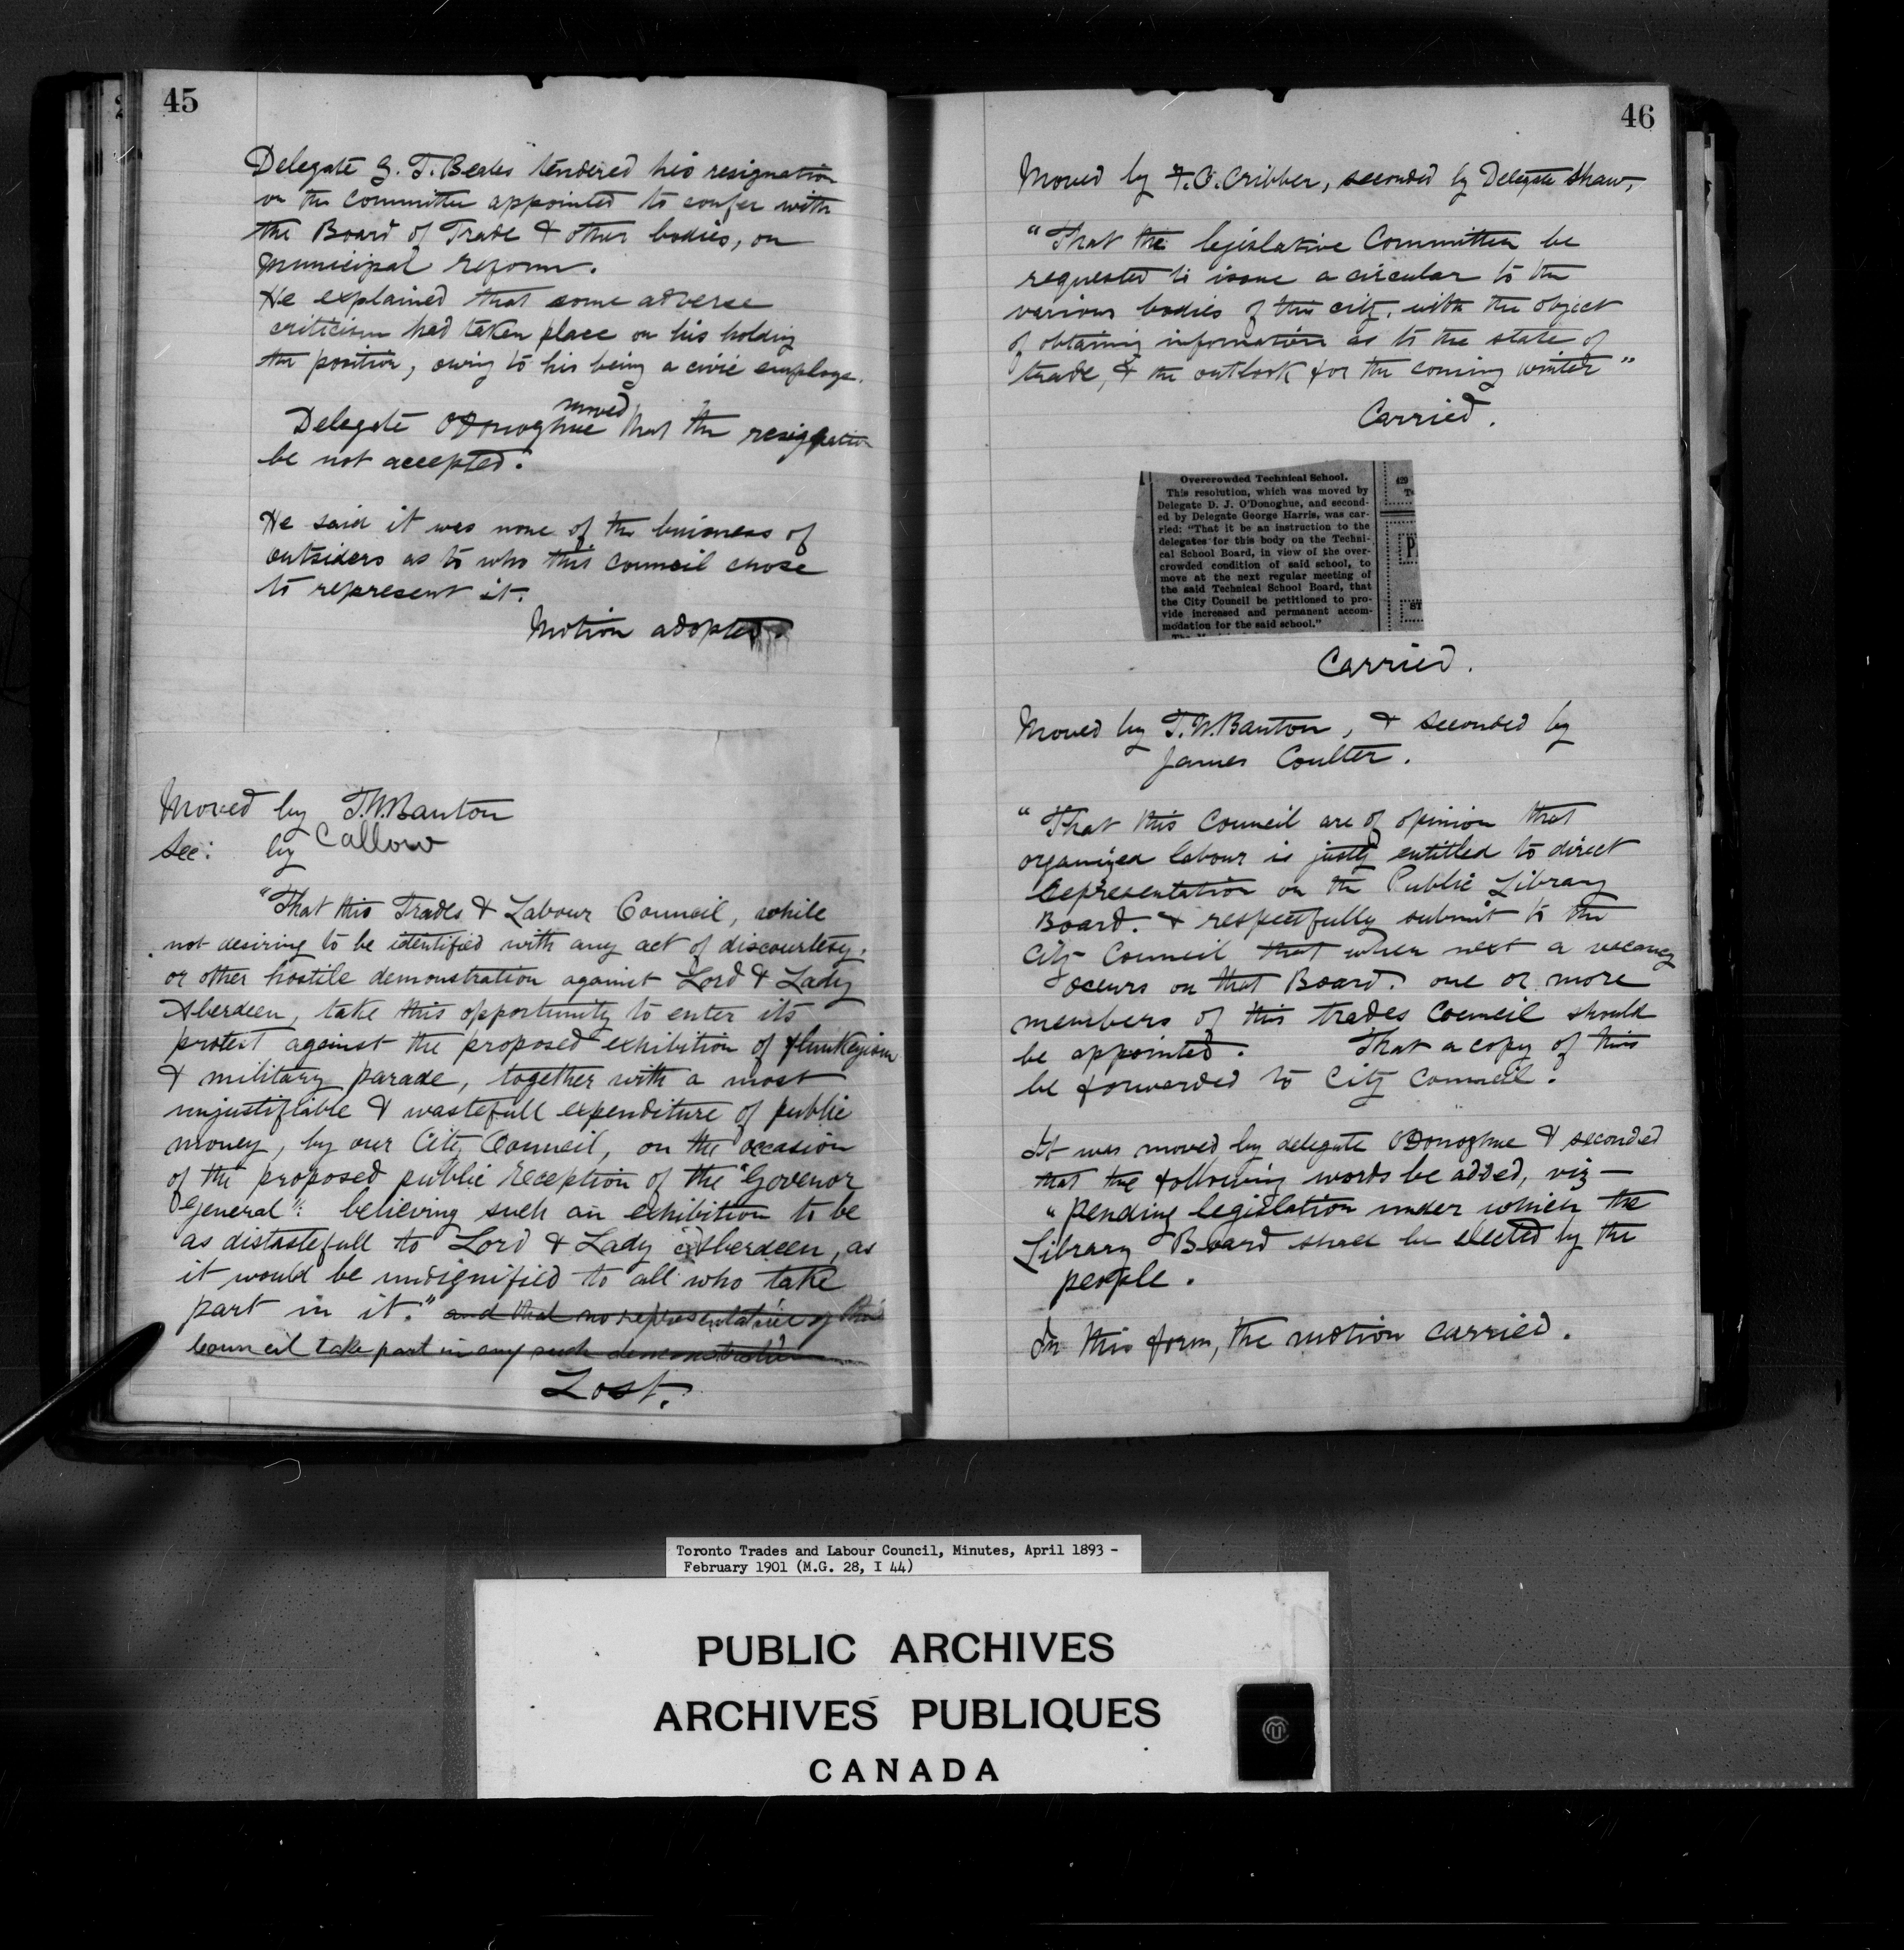 45
Delegate G. T. Beales tendered his resignation
on the Committee appointed to confer with
the Board of Trade & other bodies, on
Municipal reform.
He explained that some adverse
criticism had taken place on his holding
the position, owing to his being a civic employe.
moved
Delegate O'Donoghue that the resignation
be not accepted.
He said it was none of the business of
outsiders as to who this council chose
to represent it.
Motion adopted.
Moved by T.W. Banton
Sec: by Callow
"That this Trades & Labour Council, while
not desiring to be identified with any act of discourtesy,
or other hostile demonstration against Lord & Lady
Aberdeen, take this opportunity to enter its
protest against the proposed exhibition of flunkeyism
& military parade, together with a most
unjustifiable & wastefull expenditure of public
money, by our City Council, on the occasion
of the proposed public reception of the "Govenor
General": believing such an exhibition to be
as distastefull to Lord & Lady Aberdeen, as
it would be undignified to all who take
part in it." and that no representative of this
Council take part in any such demonstration
Lost.
46
Moved by F.C. Cribben, seconded by Delegate Shaw,
"That the legislative Committee be
requested to issue a circular to the
various bodies of this city, with the object
of obtaining information as to the state of
trade, & the outlook for the coming winter"
Carried.
Overcrowded Technical School.
This resolution, which was moved by
Delegate D. J. O'Donoghue, and second-
ed by Delegate George Harris, was car-
ried: "That it be an instruction to the
delegates for this body on the Techni-
cal School Board, in view of the over-
crowded condition of said school, to
move at the next regular meeting of
the said Technical School Board, that
the City Council be petitioned to pro-
vide increased and permanent accom-
modation for the said school."
429
Carried.
Moved by T.W. Banton, & seconded by
James Coulter.
"That this Council are of opinion that
organized labour is justly entitled to direct
representation on the Public Library
Board. & respectfully submit to the
City Council that when next a vacancy
occurs on that Board. one or more
members of this trades Council should
be appointed. That a copy of this
be forwarded to City Council.
It was moved by delegate O'Donoghue & seconded
that the following words be added, viz—
"pending legislation under which the
Library Board shall be elected by the
people.
In this form, the motion carried.
Toronto Trades and Labour Council, Minutes, April 1893 -
February 1901 (M.G. 28, I 44)
PUBLIC ARCHIVES
ARCHIVES PUBLIQUES
CANADA